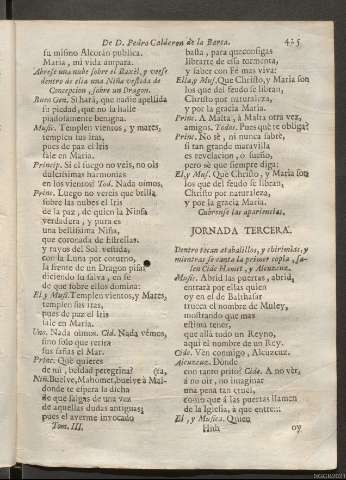 De D. Pedro Calderon de la Barca. 425
su mismo Alcorán publica.
Maria, mi vida ampara.
Abrese una nube sobre el Baxèl, y veese
dentro de ella una Niña vestida de
Concepcion, sobre un Dragon.
Buen Gen. Si harà, que nadie apellida
su piedad, que no la halle
piadosamente benigna.
Music. Templen vientos, y mares,
templen sus iras,
pues de paz el Iris
sale en Maria.
Princip. Si el fuego no veis, no ois
dulcissimas harmonias
en los vientos? Tod. Nada oimos.
Princ. Luego no vereis que brilla
sobre las nubes el Iris
de la paz, de quien la Ninfa
verdadera, y pura es
una bellissima Niña,
que coronada de Estrellas,
y rayos del Sol vestida,
con la Luna por coturno,
la frente de un Dragon pisa,
diciendo su salva, en fé
de que sobre ellos domina:
El y Musi. Templen vientos, y Mares,
templen sus iras,
pues de paz el Iris
sale en Maria.
Uno. Nada oimos. Cid. Nada vèmos,
sino solo que retira
sus sañas el Mar.
Princ. Què quieres
de mi, beldad peregrina? (ta,
Nin. Buelve, Mahomet, buelve à Mal-
donde te espera la dicha
de que salgas de una vez
de aquellas dudas antiguas;
pues el averme invocado
Tom. III.
basta, para que consigas
librarte de esta tormenta,
y saber con Fé mas viva:
Ella, y Mus. Que Christo, y Maria son
los que del feudo se libran,
Christo por naturaleza,
y por la gracia Maria.
Princ. A Malta, à Malta otra vez,
amigos. Todos. Pues què te obliga?
Princ. No sè, ni nunca sabrè,
si tan grande maravilla
es revelacion, o sueño,
pero sè que siempre diga:
El, y Mus. Que Christo, y Maria son
los que del feudo se libran,
Christo por naturaleza,
y por la gracia Maria.
Cubrense las apariencias.
JORNADA TERCERA.
Dentro tocan atabalillos, y chirimias, y
mientras se canta la primer copla, sa-
len Cide Hamet, y Alcuzcuz.
Music. Abrid las puertas, abrid,
entrarà por ellas quien
oy en el de Balthasar
trueca el nombre de Muley,
mostrando que mas
estima tener,
que allà todo un Reyno,
aqui el nombre de un Rey.
Cide. Vèn conmigo, Alcuzcuz.
Alcuzcuz. Dònde
con tanto prisa? Cide. A no vèr,
à no oir, no imaginar
una pena tan cruel,
como que à las puertas llamen
de la Iglesia, à que entre:::
El, y Musica. Quien
Hhh oy